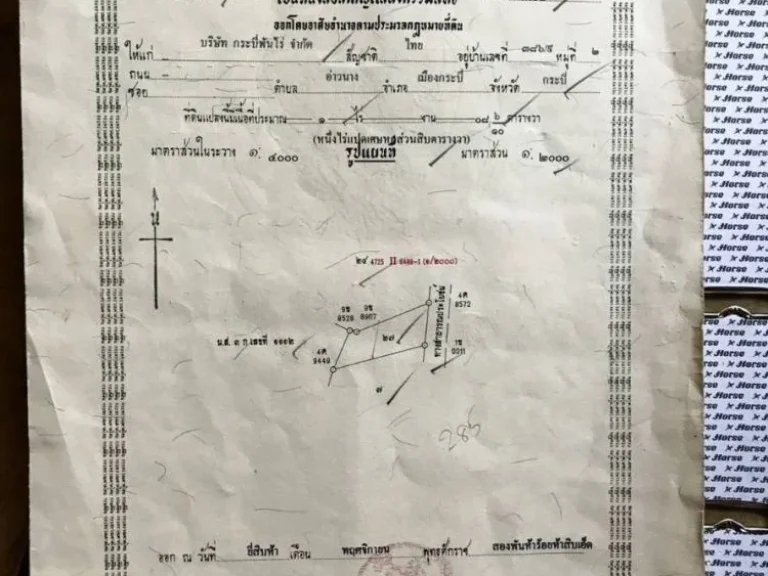 ออกโดยอาศัยอำนาจตามประมวลกฎหมายที่ดิน
ให้แก่ บริษัท กระบี่พันไร่ จำกัด สัญชาติ ไทย อยู่บ้านเลขที่ ๓๘๖/๙ หมู่ที่ ๒
ถนน อ่าวนาง เมืองกระบี่ กระบี่
ซอย ตำบล อำเภอ จังหวัด
ที่ดินแปลงนี้มีเนื้อที่ประมาณ ๑ ไร่ งาน ๐๘ ๖/๑๐ ตารางวา
(หนึ่งไร่แปดเศษหกส่วนสิบตารางวา)
มาตราส่วนในระวาง ๑: ๔๐๐๐ รูปแผนที่ มาตราส่วน ๑: ๒๐๐๐
น
4725 II 8486-1 (๑/๒๐๐๐)
9528 8907
4ค
8572
ทางสาธารณประโยชน์
น.ส. ๓ ก.เลขที่ ๑๑๑๒
๒๗
4ค
9449
๗
ออก ณ วันที่ ยี่สิบห้า เดือน พฤศจิกายน พุทธศักราช สองพันห้าร้อยห้าสิบเอ็ด
Horse